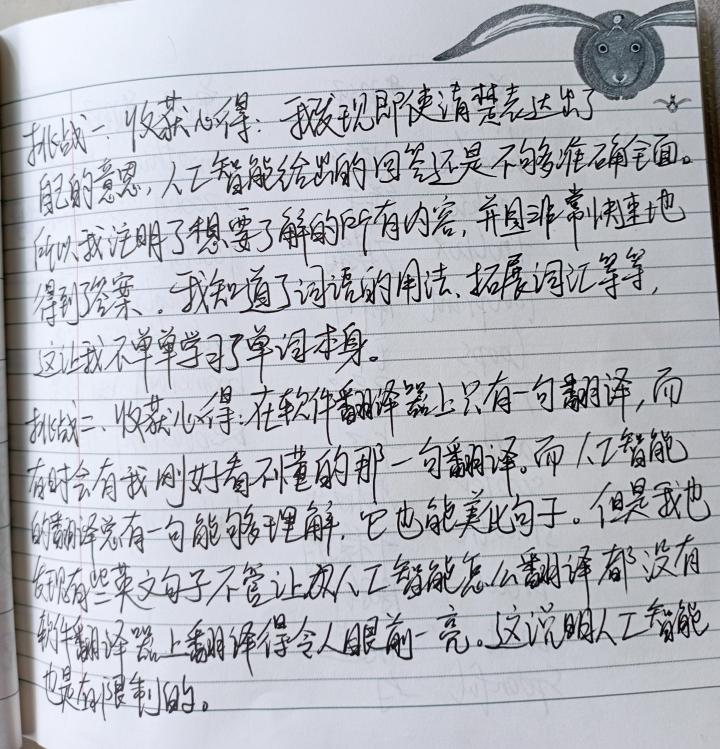 挑战一、收获心得：我发现即使清楚表达出了
自己的意思，人工智能给出的回答还是不够准确全面。
所以我注明了想要了解的所有内容，并且非常快速地
得到了答案。我知道了词语的用法、拓展词汇等等，
这让我不单单学习了单词本身。
挑战二、收获心得：在软件翻译器上只有一句翻译，而
有时会有我刚好看不懂的那一句翻译。而人工智能
的翻译总有一句能够理解，它也能美化句子。但是我也
发现有些英文句子不管让人工智能怎么翻译都没有
软件翻译器上翻译得令人眼前一亮。这说明人工智能
也是有限制的。